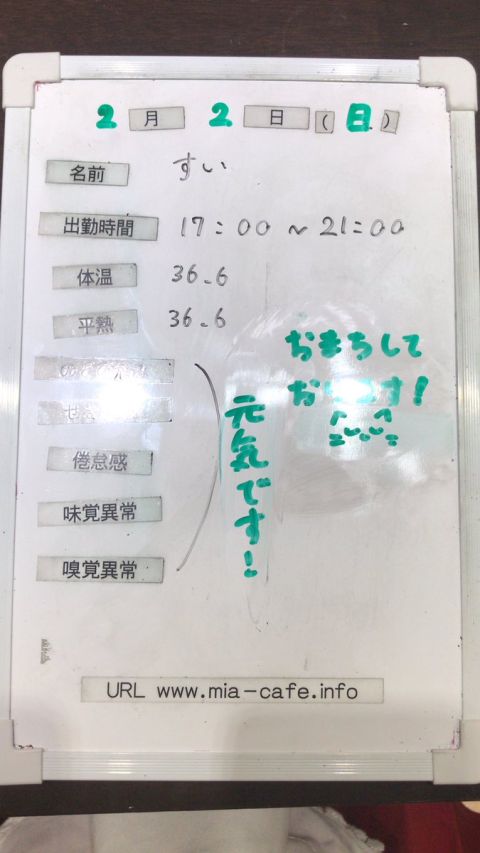 2 月 2 日 (日)
名前 すい
出勤時間 17:00 ~ 21:00
体温 36.6
平熱 36.6
おまちして
元気です!
倦怠感
味覚異常
嗅覚異常
URL www.mia-cafe.info